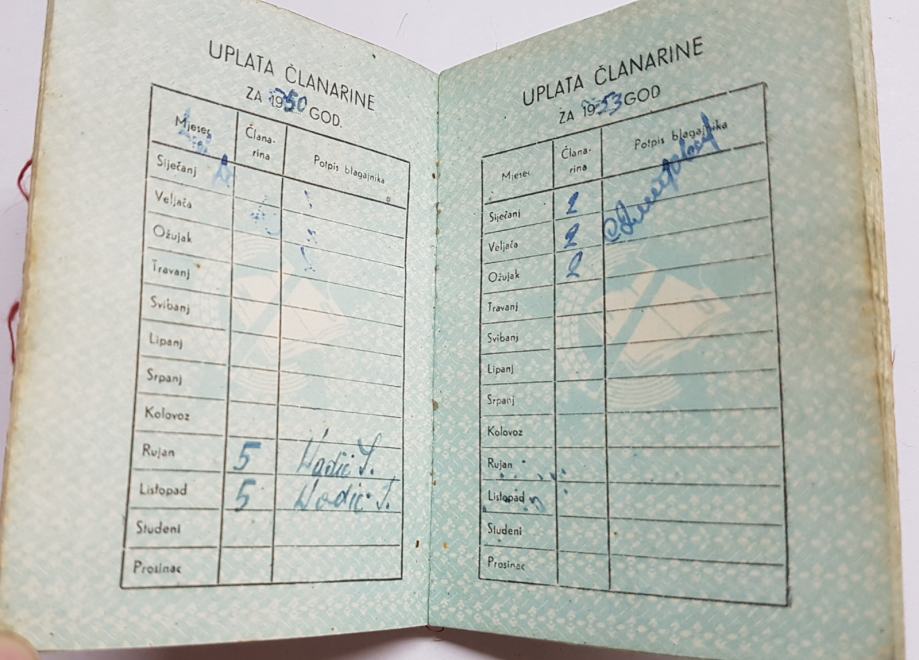 UPLATA ČLANARINE
ZA 1950 GOD.
Mjesec Člana-rina Potpis blagajnika
Siječanj
Veljača
Ožujak
Travanj
Svibanj
Lipanj
Srpanj
Kolovoz
Rujan 5
Listopad 5
Studeni
Prosinac
UPLATA ČLANARINE
ZA 1953 GOD
Mjesec Člana-rina Potpis blagajnika
Siječanj 2
Veljača 2
Ožujak 2
Travanj
Svibanj
Lipanj
Srpanj
Kolovoz
Rujan
Listopad
Studeni
Prosinac